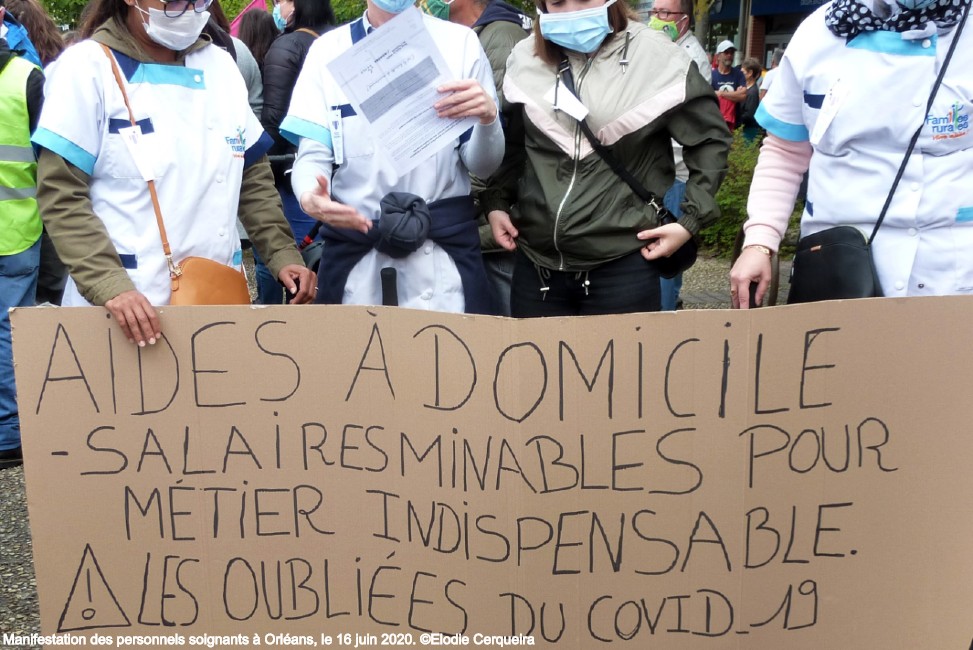 Familles
rurales
Familles
rurales
AIDES À DOMICILE
- SALAIRES MINABLES POUR
MÉTIER INDISPENSABLE.
! LES OUBLIÉES DU COVID_19
Manifestation des personnels soignants à Orléans, le 16 juin 2020. ©Elodie Cerqueira